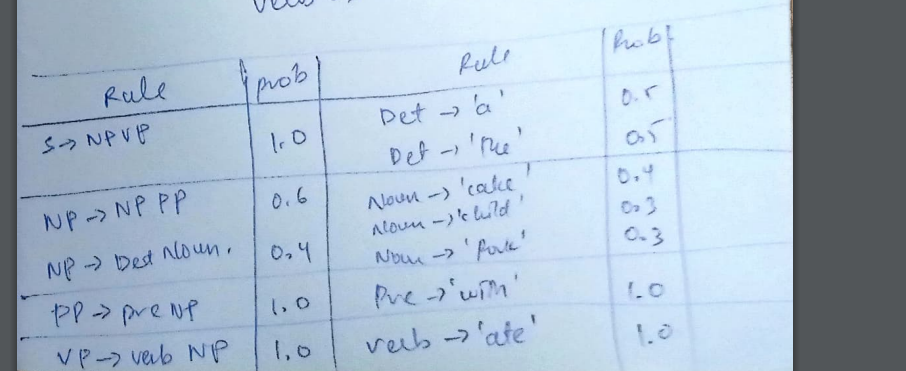 Rule | prob | Rule | Prob
S → NP VP | 1.0 | Det → 'a' | 0.5
Det → 'the' | 0.5
NP → NP PP | 0.6 | Noun → 'cake' | 0.4
Noun → 'child' | 0.3
NP → Det Noun. | 0.4 | Noun → 'fork' | 0.3
PP → pre NP | 1.0 | Pre → 'with' | 1.0
VP → verb NP | 1.0 | verb → 'ate' | 1.0